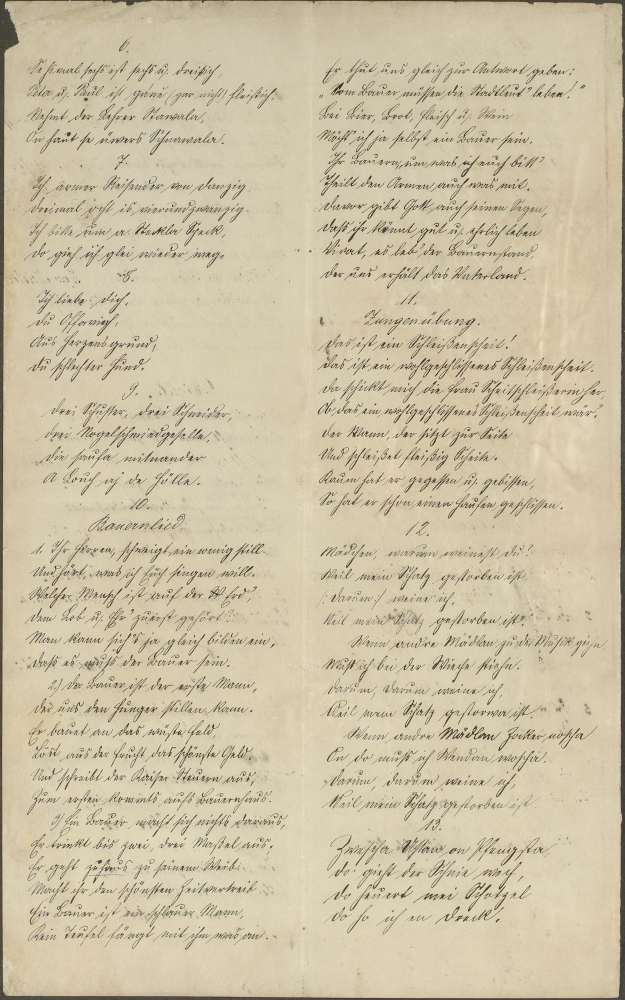 6.
Sechsmal sechs ist sechs u. dreißig,
Peta u. Paul ist  (gar nicht) fleißig:
Kehmt der Lehrer Stawala,
On haut se üwers Schnawala.
7.
Ich armer Reisender von Danzig
Dreimal acht is vierundzwanzig.
Ich bitte um a Steckla Speck,
do gieh ich glei wieder weg.
8.
Ich liebe dich,
du Ofaviech,
Aus Herzensgrund,
du schlechter Hund.
9.
Drei Schuster, drei Schneider,
drei Nogelschmiedgeselle,
die saufa mitnander
A Louch ei de Hölle.
10.
Bauernlied.
1. Ihr Herren, schweigt ein wenig still
Und hört, was ich Euch singen will.
Welcher Mensch ist auf der Erd',
dem Lob u. Ehr' zuerst gehört?
Man kann sich's ja gleich bilden ein,
daß es muß der Bauer sein.
2.) Der Bauer ist der erste Mann,
der uns den Hunger stillen kann.
Er bauet an das wüste Feld,
Löst aus der Frucht das schönste Geld.
Und schreibt der Kaiser Steuern aus,
Zum ersten kommts aufs Bauernhaus.
3) Ein Bauer macht sich nichts daraus,
Er trinkt bis zwei, drei Maßel aus.
Er geht zuhaus zu seinem Weib
Macht ihr den schönsten Zeitvertreib
Ein Bauer ist ein schlauer Mann,
Kein Teufel fängt mit ihm was an.
Er thut uns gleich zur Antwort geben:
„Vom Bauer müssen die Stadtleut' leben!"
Bei Bier, Brot, Fleisch u. Wein
Möcht ich ja selbst ein Bauer sein.
Ihr Bauern, um was ich euch bitt'
Theilt den Armen auch was mit.
Davor gibt Gott auch seinen Segen,
daß ihr könnt gut u. ehrlich leben
Vivat, es leb' der Bauernstand,
der uns erhält das Vaterland.
11.
Zungenübung.
Das ist ein Schleißenscheit!
Das ist ein wohlgeschlissenes Schleißenscheit.
Da schickt mich die Frau Scheitschleißerin her,
Ob das ein wohlgeschlissenes Schleißenscheit wär.
Der Mann, der sitzt zur Seite
Und schleißet fleißig Scheite.
Kaum hat er gegessen u. gebissen,
So hat er schon einen Haufen geschlissen.
12.
Mädchen, warum weinest du?
Weil mein Schatz gestorben ist
Darum weine ich,
Weil mein Schatz gestorben ist.
Wenn andre Mädlan zu der Musik giehn
Muß ich bei der Wiege stiehn.
Darum, darum weine ich,
Weil mein Schatz gestorwa ist.
Wenn andre Mädlan Hocker woscha
On do muß ich Wendan woscha.
Darum, darum weine ich,
Weil mein Schatz gestorben ist.
13.
Zwescha Ustan on Pfengsta
do gieht der Schnie weg,
do heuert mei Schatzel
do ho ich en Dreck.